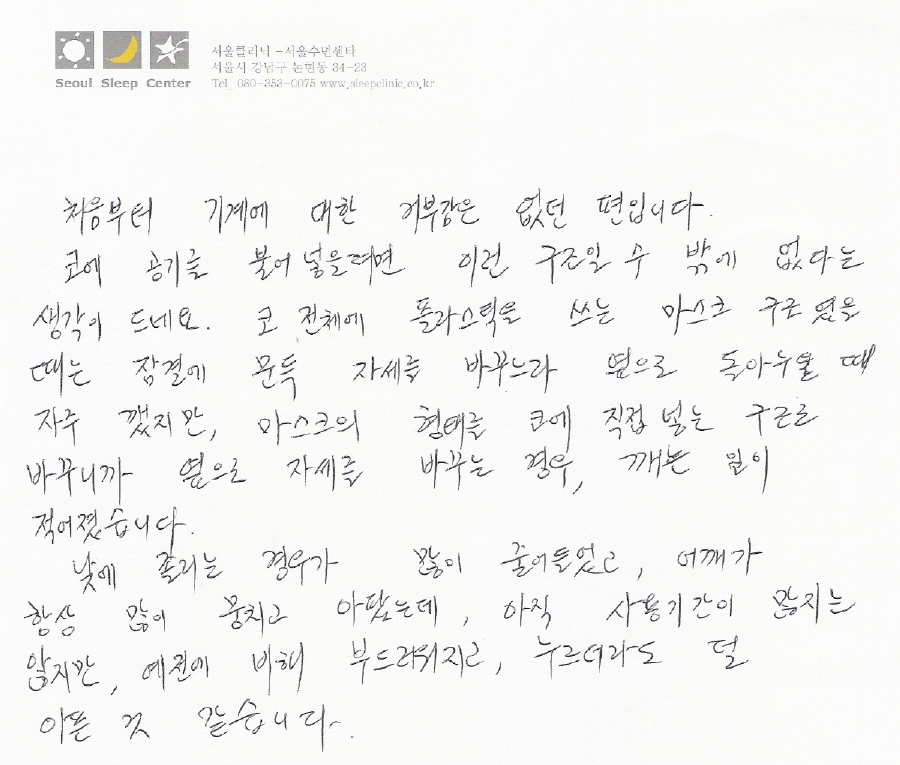 서울클리닉 -서울수면센타
서울시 강남구 논현동 34-23
Seoul Sleep Center
Tel_ 080-353-0075 www.sleepclinic.co.kr
처음부터 기계에 대한 거부감은 없던 편입니다.
코에 공기를 불어 넣을려면 이런 구조일 수 밖에 없다는
생각이 드네요. 코 전체에 플라스틱을 쓰는 마스크 구조였을
때는 잠결에 문득 자세를 바꾸느라 옆으로 돌아누울 때
자주 깼지만, 마스크의 형태를 코에 직접 넣는 구조로
바꾸니까 옆으로 자세를 바꾸는 경우, 깨는 일이
적어졌습니다.
낮에 졸리는 경우가 많이 줄어들었고, 어깨가
항상 많이 뭉치고 아팠는데, 아직 사용기간이 많지는
않지만, 예전에 비해 부드러워지고, 누르더라도 덜
아픈 것 같습니다.